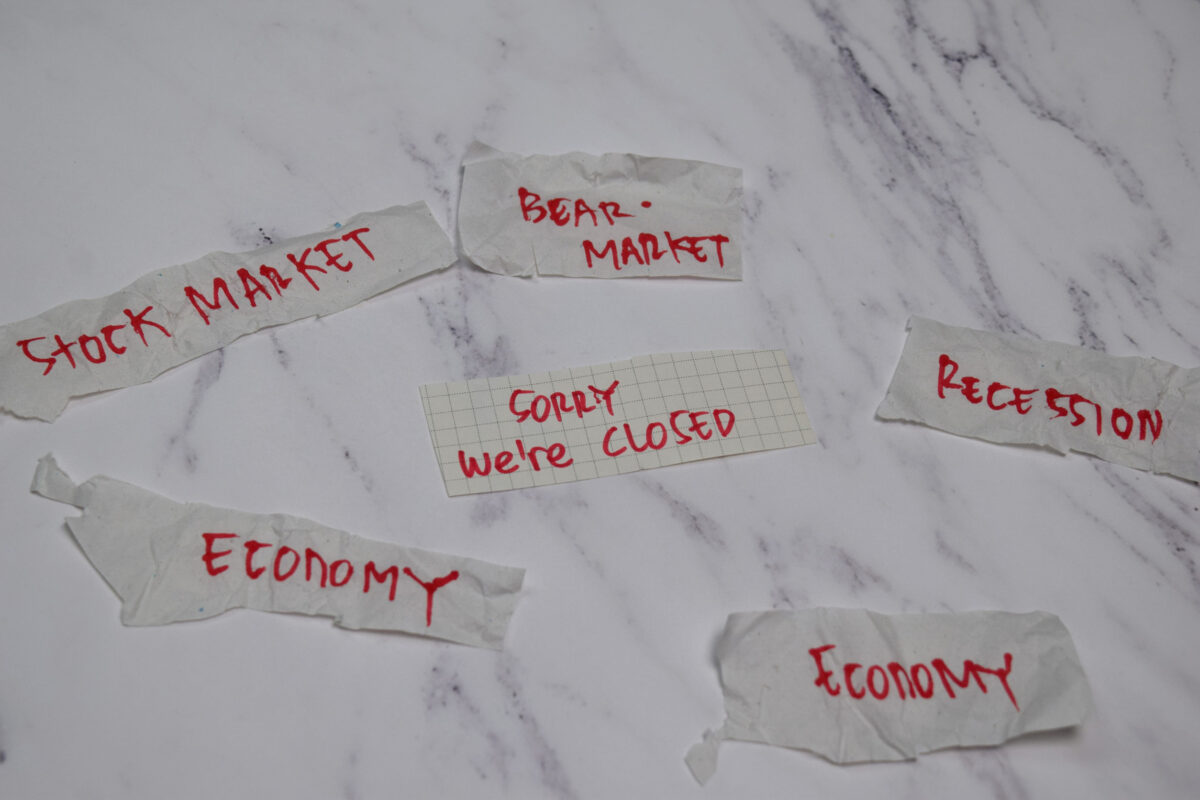 BEAR.
MARKET
STOCK MARKET
RECESSION
SORRY
we're CLOSED
ECONOMY
ECONOMY